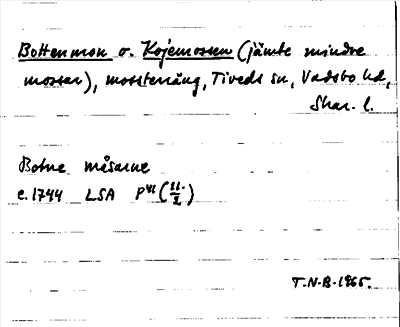 Bottenmon o. Kojemossen (jämte mindre
mossar), mossterräng, Tiveds sn, Vadsbo hd,
Skar. l.
Botne måsarne
c. 1744 LSA P41 (11/2)
T.N-B. 1965.